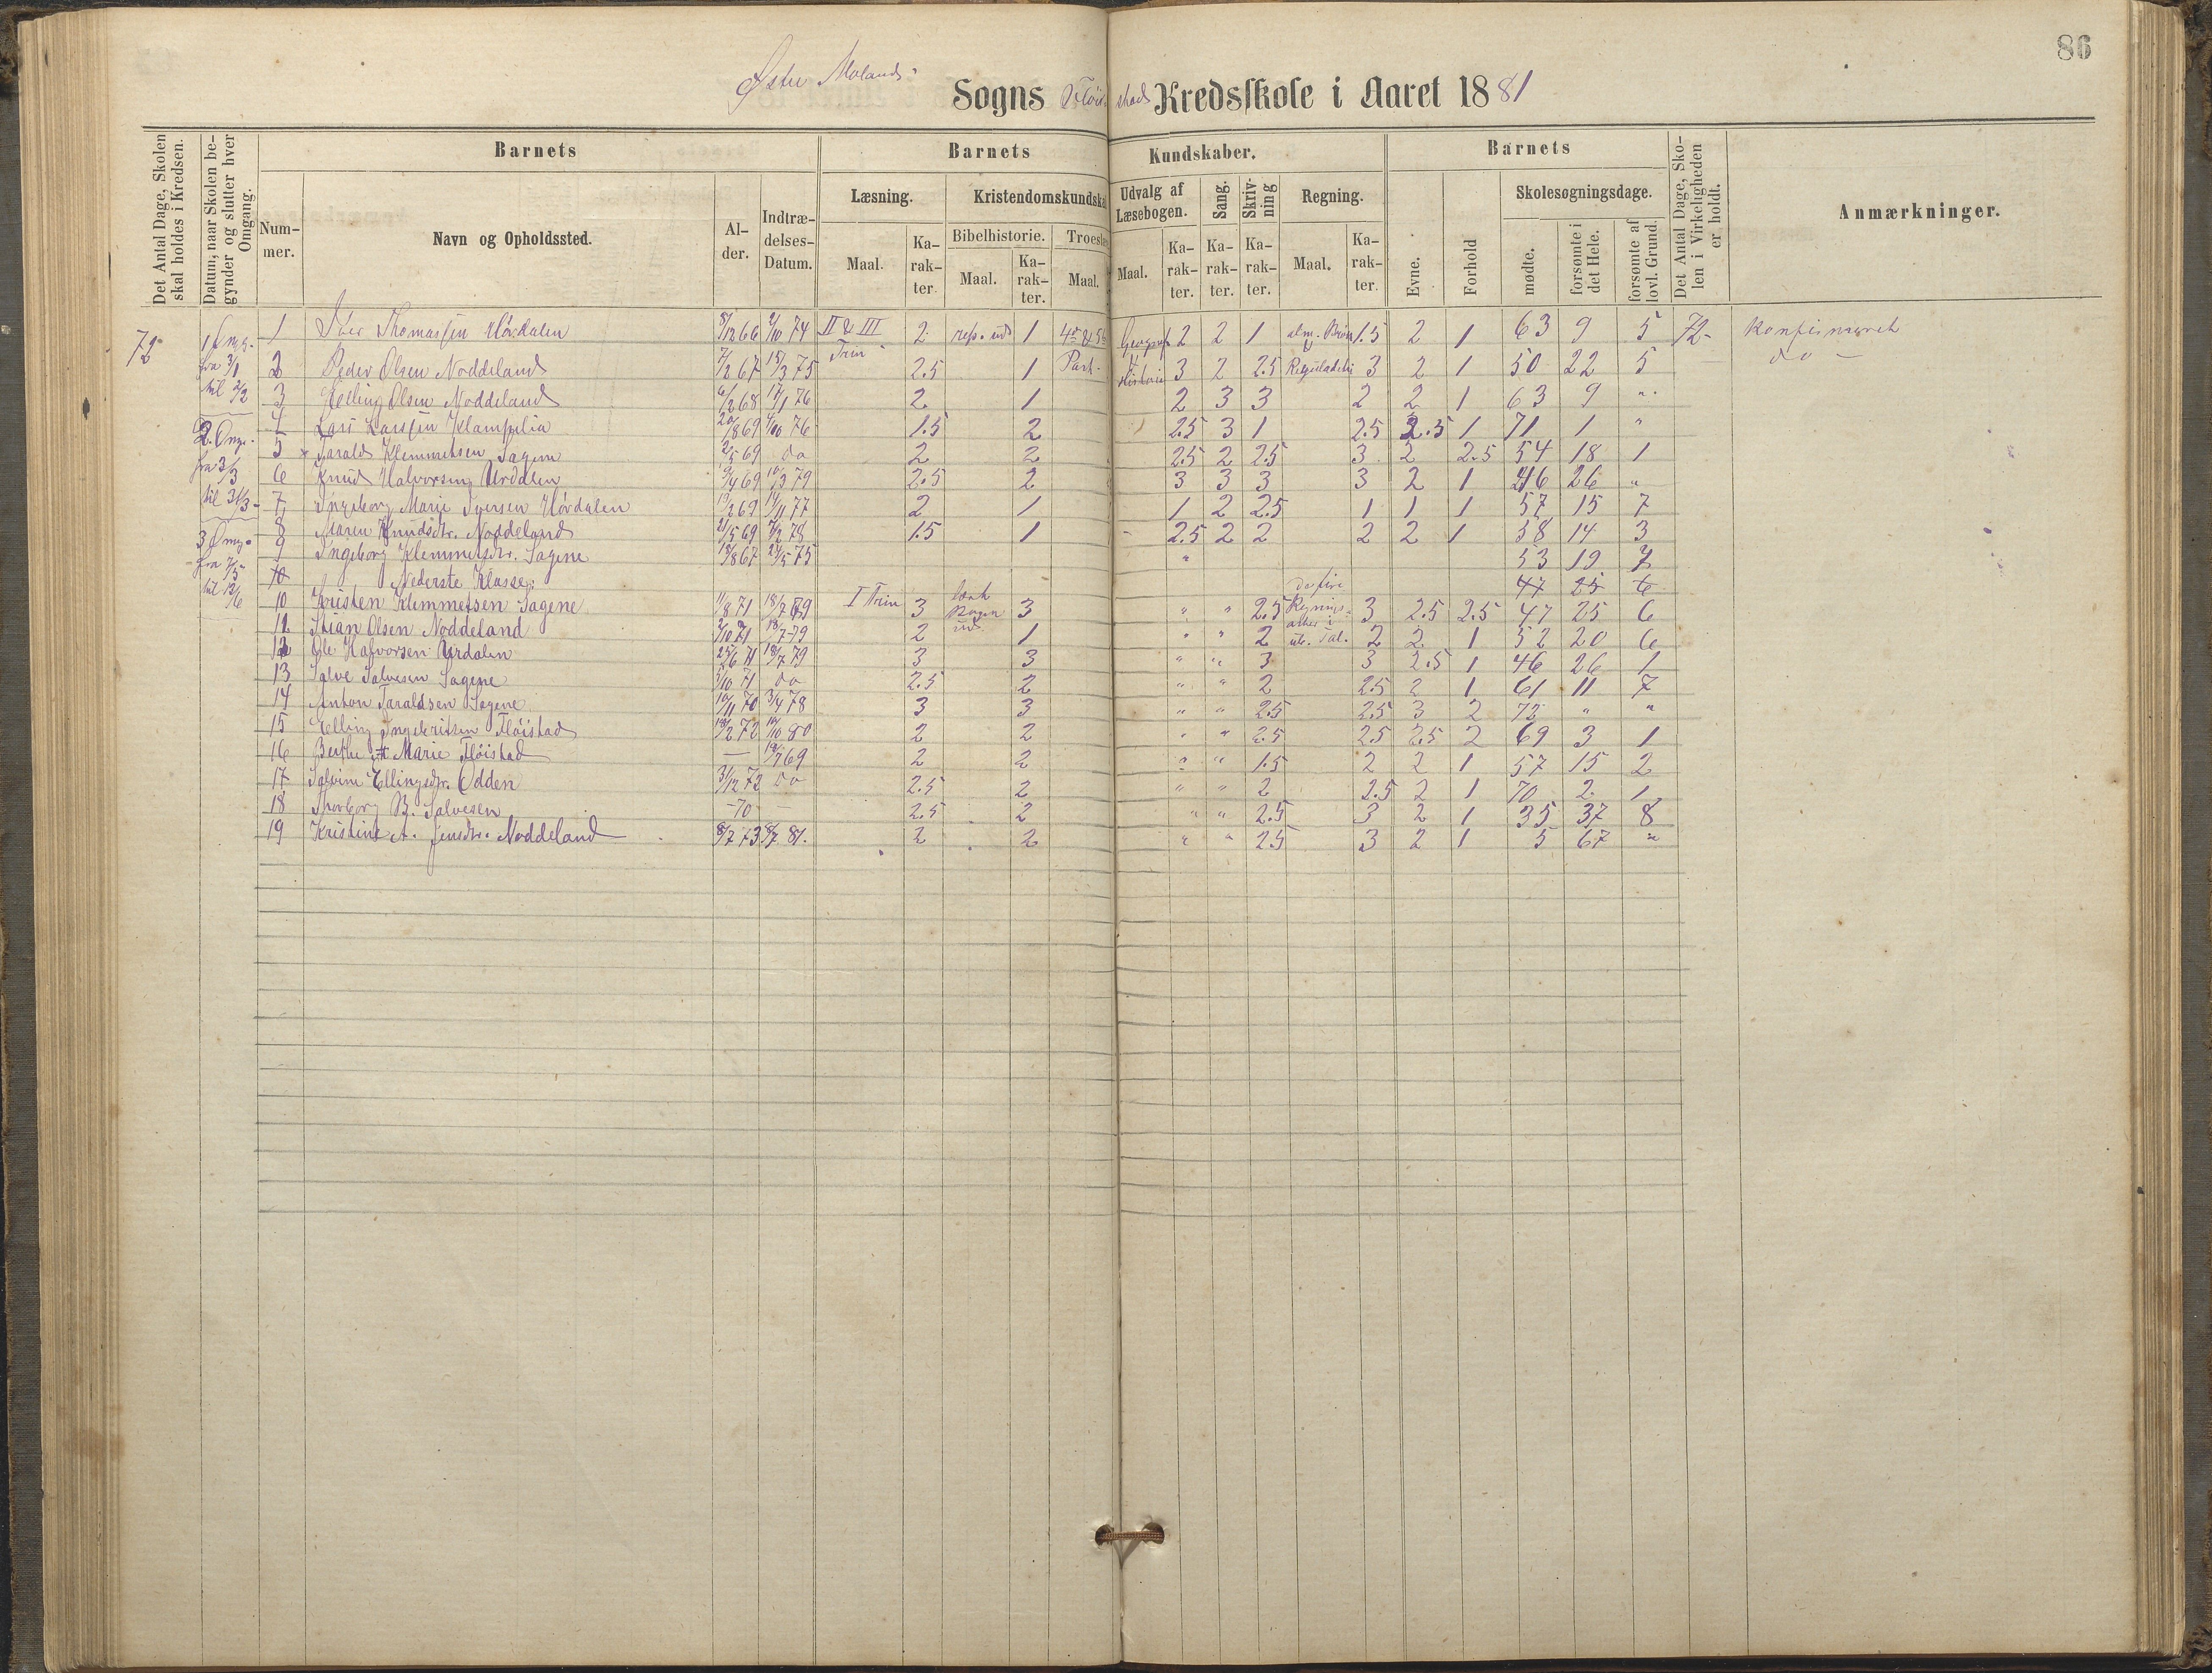 86
Østre Molands
Sogns Fløistad Kredsskole i Aaret 1881
Det Antal Dage, Skolen skal holdes i Kredsen.
Datum, naar Skolen begynder og slutter hver Omgang.
Barnets
Barnets Kundskaber.
Barnets
Det Antal Dage, Skolen i Virkeligheden er holdt.
Anmærkninger.
Num-mer.
Navn og Opholdssted.
Al-der.
Indtræ-delses-Datum.
Læsning.
Kristendomskundska
Udvalg af Læsebogen.
Sang.
Skriv-ning
Regning.
Evne.
Forhold
Skolesøgningsdage.
Bibelhistorie.
Troesl
Maal.
Ka-rak-ter.
Maal.
Ka-rak-ter.
Maal.
Maal.
Ka-rak-ter.
Ka-rak-ter.
Ka-rak-ter.
Maal.
Ka-rak-ter.
mødte.
forsømte i det Hele.
forsømte af lovl. Grund.
72
1 Omg. fra 3/1 til 2/2
2. Omg. fra 3/3 til 31/3
3 Omg. fra 7/5 til 12/6
1 Iver Thomassen Hørdalen 8/12 66 2/10 74 II & III Trin 2 rep. ud 1 4de & 5te Part Geograf 2 2 1 alm. Brøk 1.5 2 1 63 9 5 72 Konfirmeret
2 Peder Olsen Noddeland 7/2 67 15/3 75 2.5 1 Historie 3 2 2.5 Reguladetri 3 2 1 50 22 5 do
3 Elling Olsen Noddeland 6/2 68 17/11 76 2 1 2 3 3 2 2 1 63 9 "
4 Lars Larssen Klampelia 20/8 69 4/10 76 1.5 2 2.5 3 1 2.5 2.5 1 71 1 "
5 Tarald Klemmetsen Sagene 2/5 69 do 2 2 2.5 2 2.5 3 2 2.5 54 18 1
6 Knud Halvorsen Urdalen 9/4 69 10/3 79 2.5 2 3 3 3 3 2 1 46 26 "
7 Ingeborg Marie Iversen Hørdalen 19/2 69 14/11 77 2 1 1 2 2.5 1 1 1 57 15 7
8 Maren Knudsdtr. Noddeland 21/5 69 7/2 78 1.5 1 2.5 2 2 2 2 1 58 14 3
9 Ingeborg Klemmetsdtr. Sagene 18/8 67 24/5 75 " 53 19 7
10 Nederste Klasse: 47 25 6
10 Kristen Klemmetsen Sagene 11/8 71 18/7 79 I Trin 3 3 " " 2.5 De fire Regnings- 3 2.5 2.5 47 25 6
11 Stian Olsen Noddeland 2/10 71 18/7 79 2 1 " " 2 ub. Tal. 2 2 1 52 20 6
12 Ole Halvorsen Urdalen 25/6 71 18/7 79 3 3 " " 3 3 2.5 1 46 26 1
13 Salve Salvesen Sagene 3/10 71 do 2.5 2 " " 2 2.5 2 1 61 11 7
14 Anton Taraldsen Sagene 10/11 70 3/4 78 3 3 " " 2.5 2.5 3 2 72 " "
15 Elling Ingebritsen Fløistad 18/2 72 10/10 80 2 2 " " 2.5 2.5 2.5 2 69 3 1
16 Berthe Marie Fløistad — 19/7 69 2 2 " " 1.5 2 2 1 57 15 2
17 Salvine Ellingsdtr. Odden 31/12 72 do 2.5 2 " " 2 2.5 2 1 70 2 1
18 Thorborg B. Salvesen -70 — 2.5 2 " " 2.5 3 2 1 35 37 8
19 Kristine A. Jensdtr. Noddeland 8/2 73 8/7 81. 2 2 " " 2.5 3 2 1 5 67 "